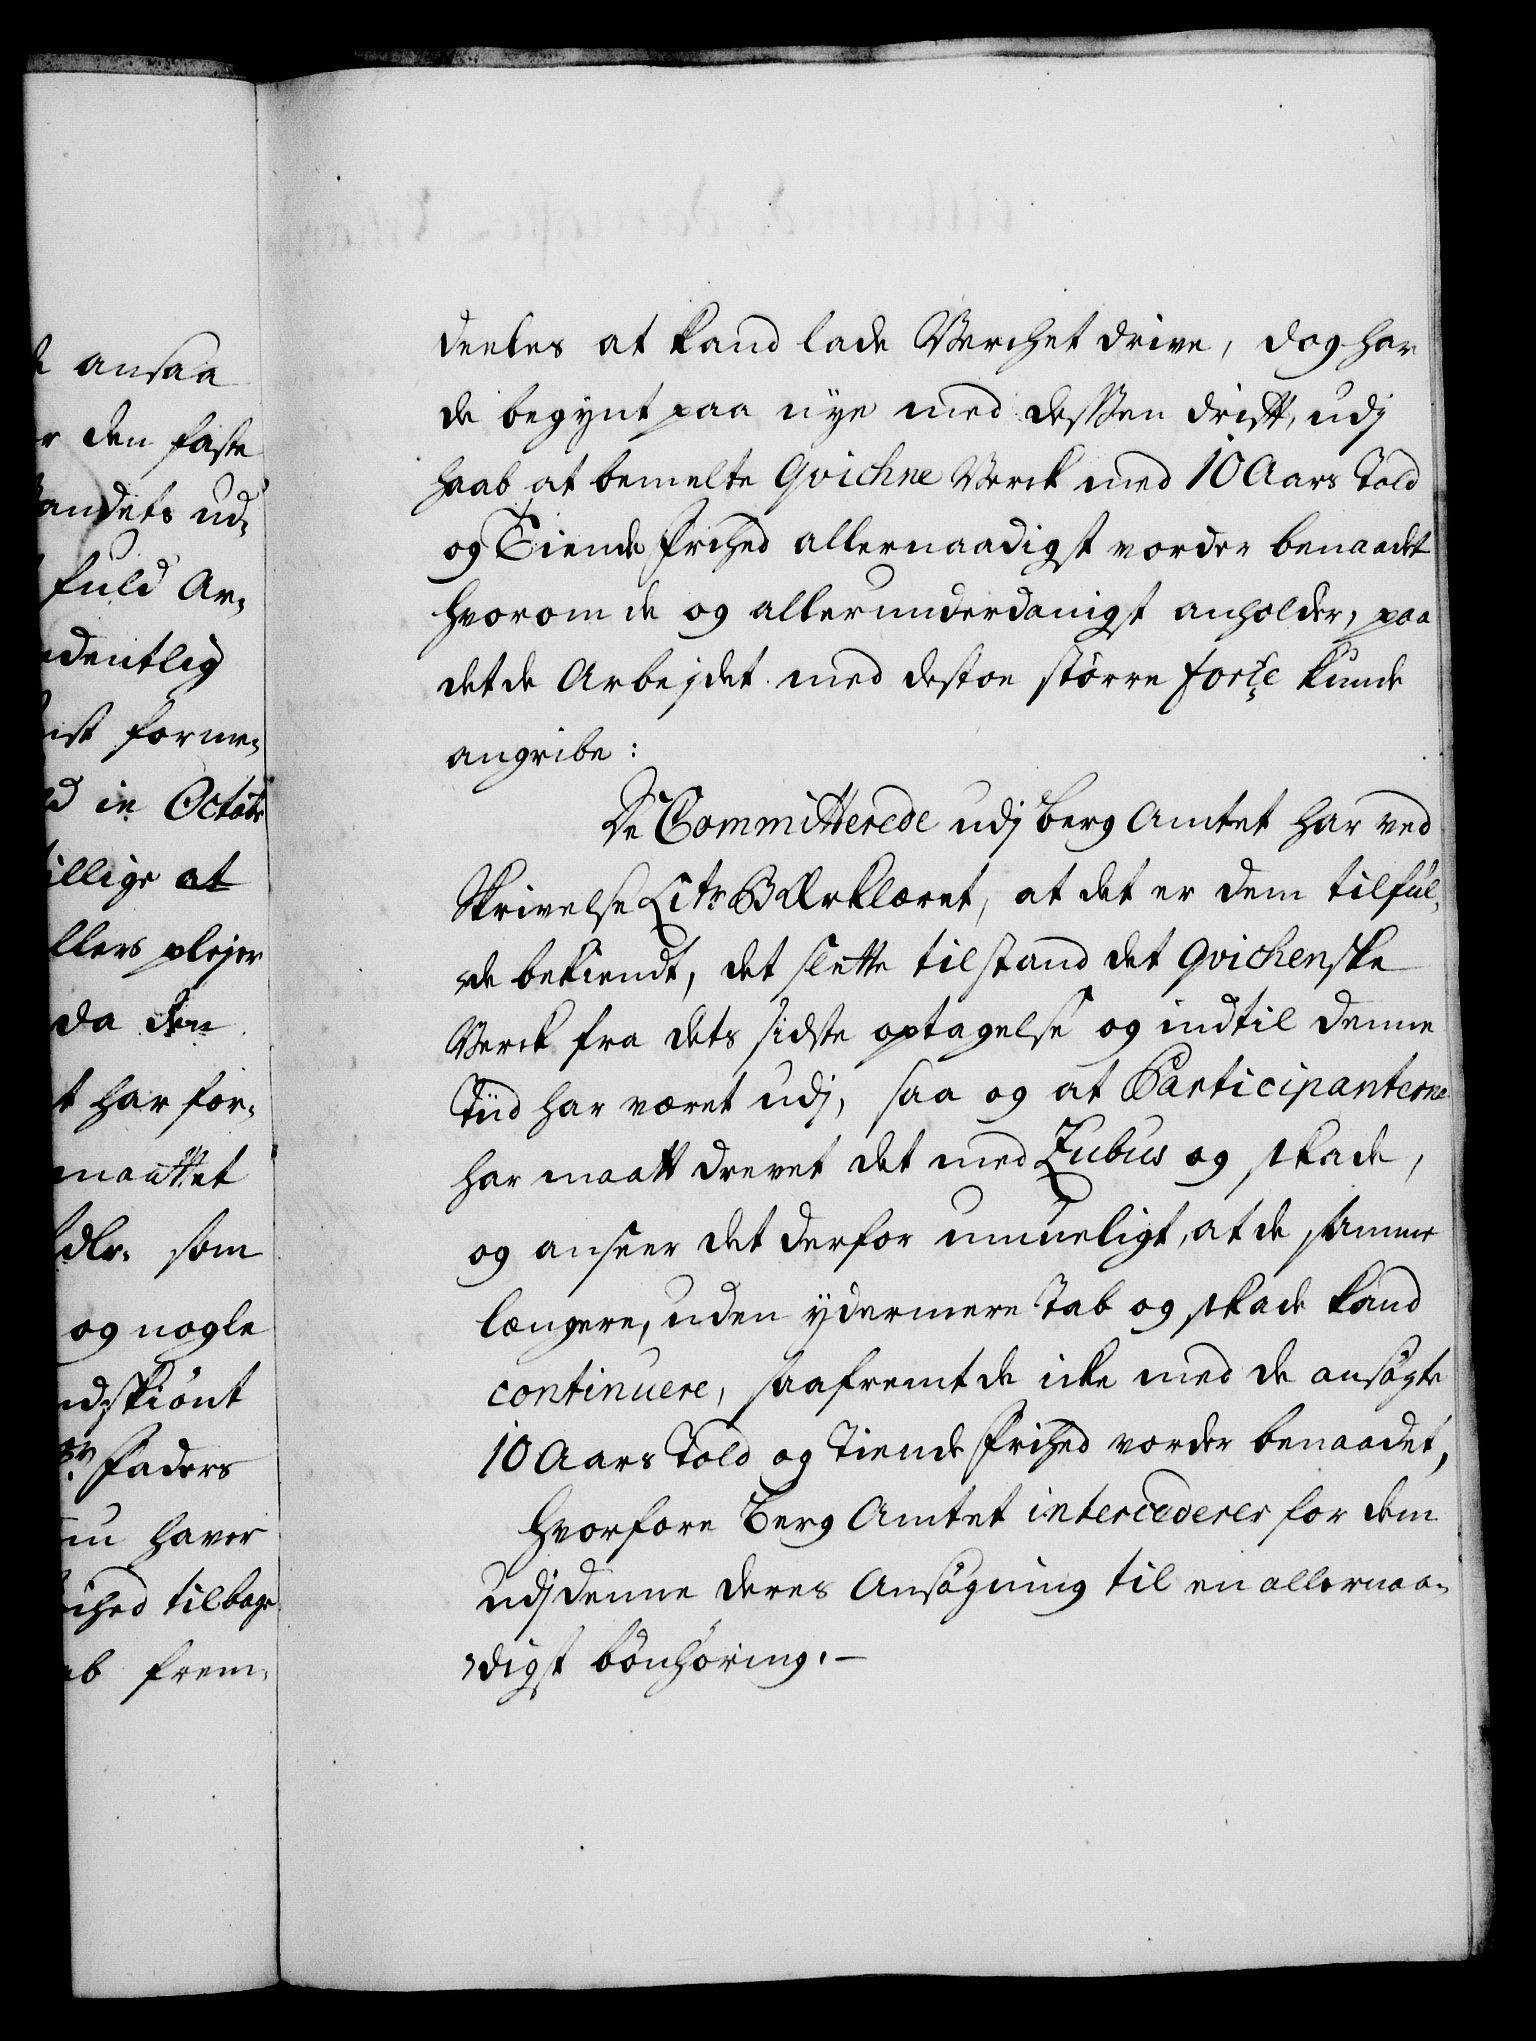 ansaa
r den faste
andets ud-
fuld Ar-
dentlig
ist forme-
d in Octobr
illige at
llers plejer
da den
t har for-
maattet
dlr. som
og nogle
ndskiönt
Faders
nu haver
ihed tilbage
ab frem-
deeles at kand lade Werchet drive, dog har
de begynt paa nye med dessen drifft, udj
haab at bemelte Qvichne Werck med 10 Aars Told
og Tiende Frihed allernaadigst vorder benaadet
hvorom de og allerunderdanigst anholder, paa
det de Arbejdet med destoe större force kunde
angribe:
De Committerede udj Berg Amtet har ved
Skrivelse Litr B Erklæret, at det er dem tilful-
de bekiendt, det slette tilstand det Qvichenske
Werck fra dets sidste optagelse og indtil denne
Tiid har været udj, saa og at Participanterne
har maatt drevet det med Zubus og skade,
og anseer det derfor umueligt, at de samme
længere, uden ydermere Tab og skade kand
continuere, saafremt de icke med de ansögte
10 Aars Told og Tiende Frihed vorder benaadet,
Hvorfore Berg Amtet intercederer for dem
udj denne deres Ansögning til en allernaa-
digst bönhöring.-